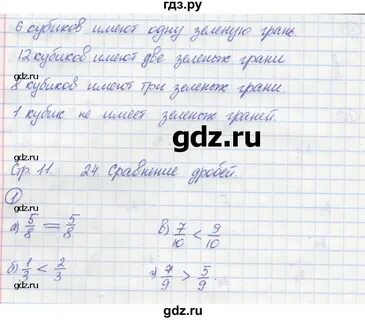 гдз.ру
6 кубиков имеют одну зеленую грань
12 кубиков имеют две зеленых грани
8 кубиков имеют три зеленых грани.
1 кубик не имеет зеленых граней.
gdz.ru
Стр. 11. 24. Сравнение дробей.
1
а) 5/8 = 5/8 в) 7/10 < 9/10
б) 1/3 < 2/3 г) 7/9 > 5/9.
gdz.ru